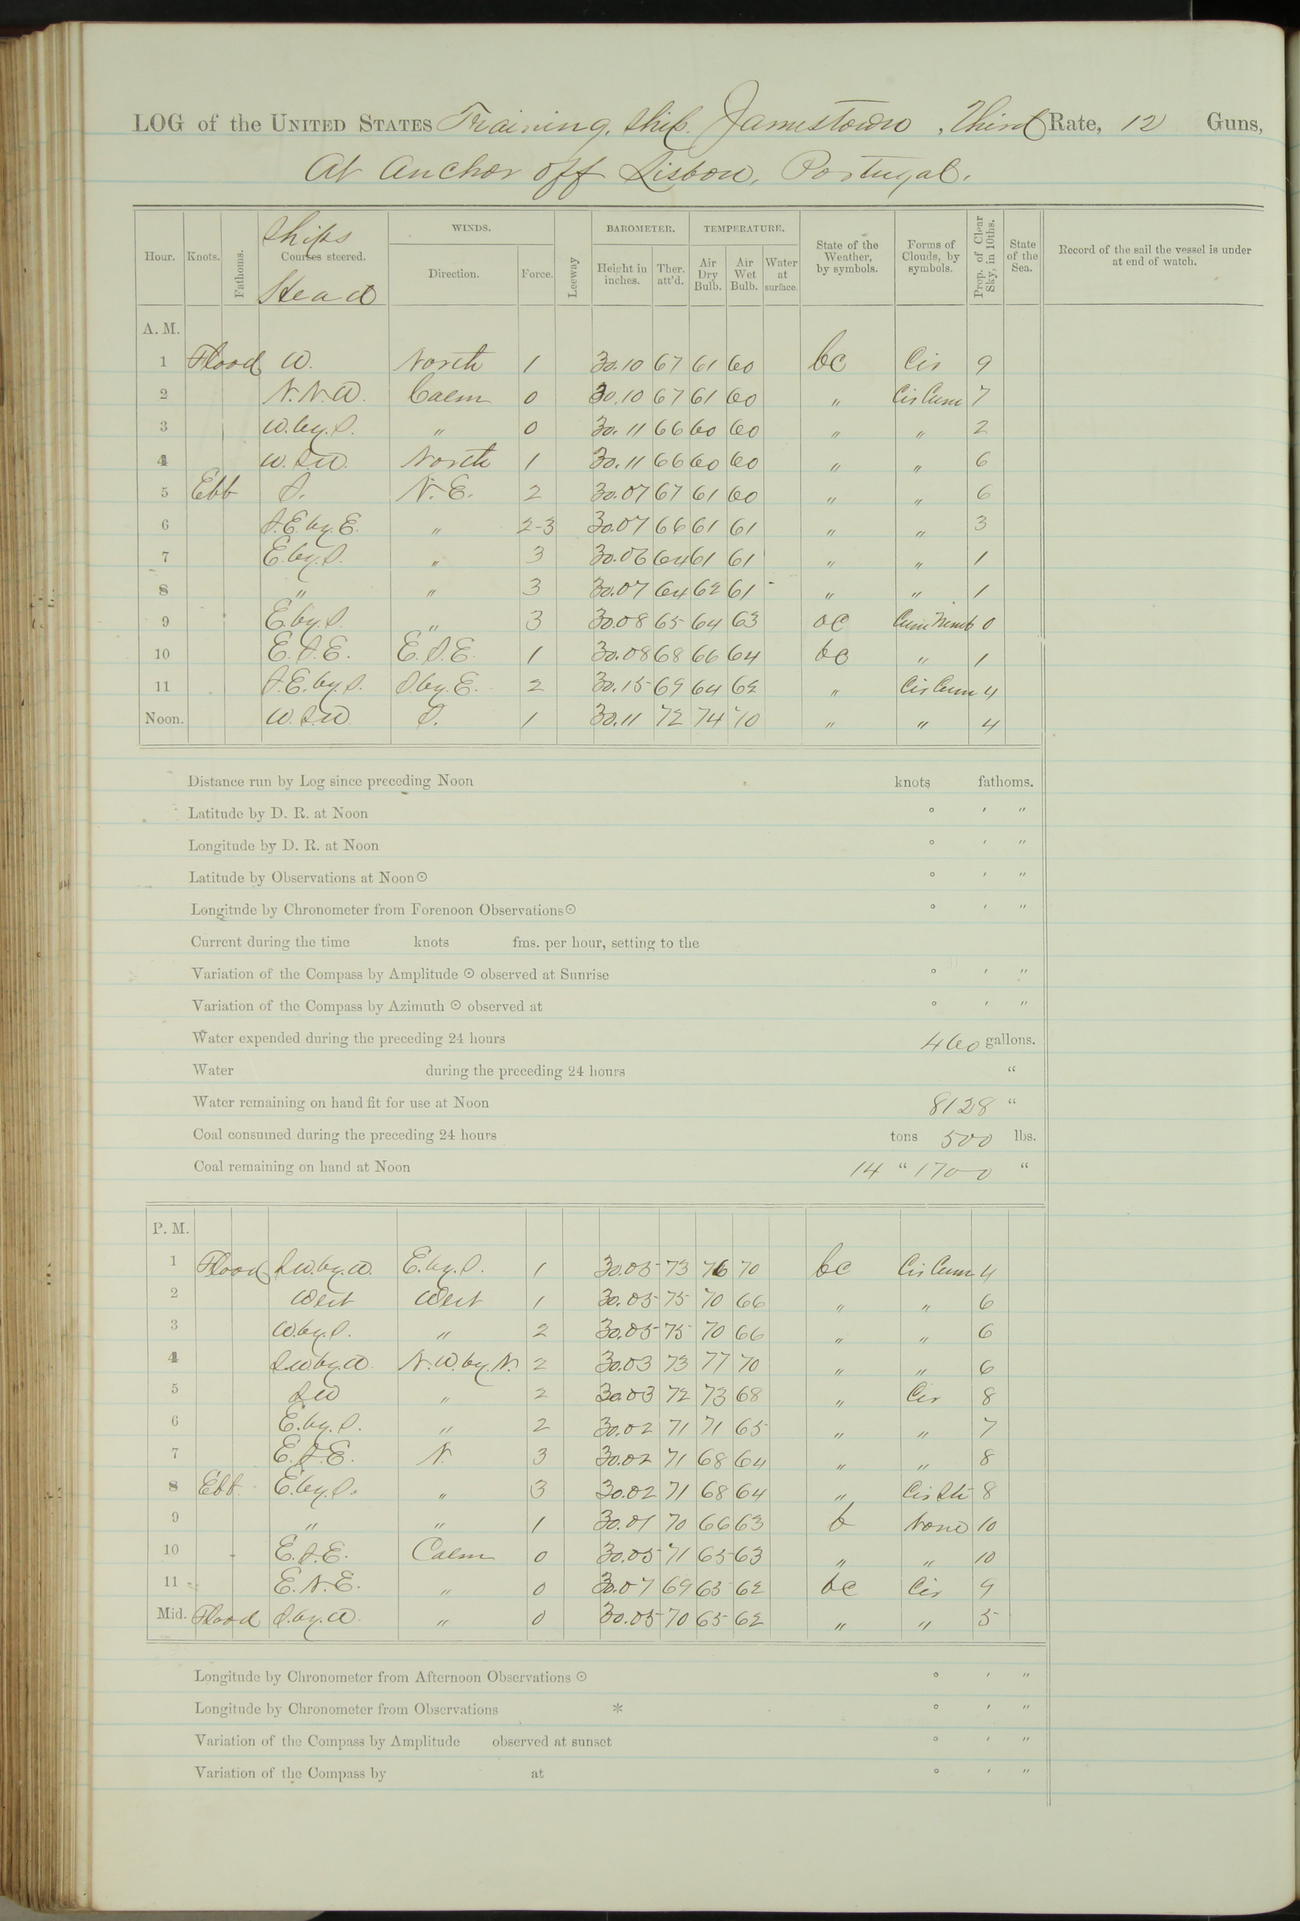 LOG of the UNITED STATES Training Ship Jamestown, Third Rate, 12 Guns,
At Anchor off Lisbon, Portugal.
Hour. Knots. Fathoms. Ships Courses steered. Head WINDS. Direction. Force. Leeway BAROMETER. Height in inches. Ther. att'd. TEMPERATURE. Air Dry Bulb. Air Wet Bulb. Water at surface. State of the Weather, by symbols. Forms of Clouds, by symbols. Prop. of Clear Sky, in 10ths. State of the Sea. Record of the sail the vessel is under at end of watch.
A. M.
1 Flood W. North 1 30.10 67 61 60 bc Cir 9
2 N.N.W. Calm 0 30.10 67 61 60 " Cir Cum 7
3 W. by. S. " 0 30.11 66 60 60 " " 2
4 W.SW. North 1 30.11 66 60 60 " " 6
5 Ebb S. N.E. 2 30.07 67 61 60 " " 6
6 S.E. by. E. " 2-3 30.07 66 61 61 " " 3
7 E. by. S. " 3 30.06 64 61 61 " " 1
8 " " 3 30.07 64 62 61 " " 1
9 E. by. S. " 3 30.08 65 64 63 oc Cum Nimb 0
10 E.S.E. E.S.E. 1 30.08 68 66 64 bc " 1
11 S.E. by. S. S. by. E. 2 30.15 69 64 62 " Cir Cum 4
Noon. W.SW. S. 1 30.11 72 74 70 " " 4
Distance run by Log since preceding Noon knots fathoms.
Latitude by D. R. at Noon ° ′ ″
Longitude by D. R. at Noon ° ′ ″
Latitude by Observations at Noon ☉ ° ′ ″
Longitude by Chronometer from Forenoon Observations ☉ ° ′ ″
Current during the time knots fms. per hour, setting to the
Variation of the Compass by Amplitude ☉ observed at Sunrise ° ′ ″
Variation of the Compass by Azimuth ☉ observed at ° ′ ″
Water expended during the preceding 24 hours 460 gallons.
Water during the preceding 24 hours “
Water remaining on hand fit for use at Noon 8128 “
Coal consumed during the preceding 24 hours tons 500 lbs.
Coal remaining on hand at Noon 14 “ 1700 “
P. M.
1 Flood SW. by. W. E. by. S. 1 30.05 73 76 70 bc Cir Cum 4
2 West West 1 30.05 75 70 66 " " 6
3 W. by. S. " 2 30.05 75 70 66 " " 6
4 SW by. W. N.W. by. N. 2 30.03 73 77 70 " " 6
5 SW " 2 30.03 72 73 68 " Cir 8
6 E. by. S. " 2 30.02 71 71 65 " " 7
7 E.S.E. N. 3 30.02 71 68 64 " " 8
8 Ebb E. by. S. " 3 30.02 71 68 64 " Cir Str 8
9 " " 1 30.01 70 66 63 b None 10
10 E.S.E. Calm 0 30.05 71 65 63 " " 10
11 E.N.E. " 0 30.07 69 63 62 bc Cir 9
Mid. Flood S. by. W. " 0 30.05 70 65 62 " " 5
Longitude by Chronometer from Afternoon Observations ☉ ° ′ ″
Longitude by Chronometer from Observations * ° ′ ″
Variation of the Compass by Amplitude observed at sunset ° ′ ″
Variation of the Compass by at ° ′ ″